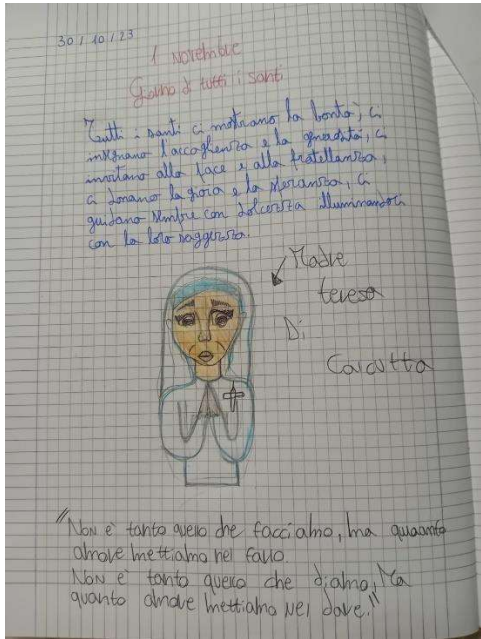 30/10/23
1 Novembre
Giorno di tutti i santi
Tutti i santi ci mostrano la bontà, ci
insegnano l'accoglienza e la generosità, ci
invitano alla pace e alla fratellanza,
ci donano la gioia e la speranza, ci
guidano sempre con dolcezza illuminandoci
con la loro saggezza.
Madre
teresa
Di
Calcutta
"Non è tanto quello che facciamo, ma quanto
amore mettiamo nel farlo.
Non è tanto quello che diamo, Ma
quanto amore mettiamo nel dare."